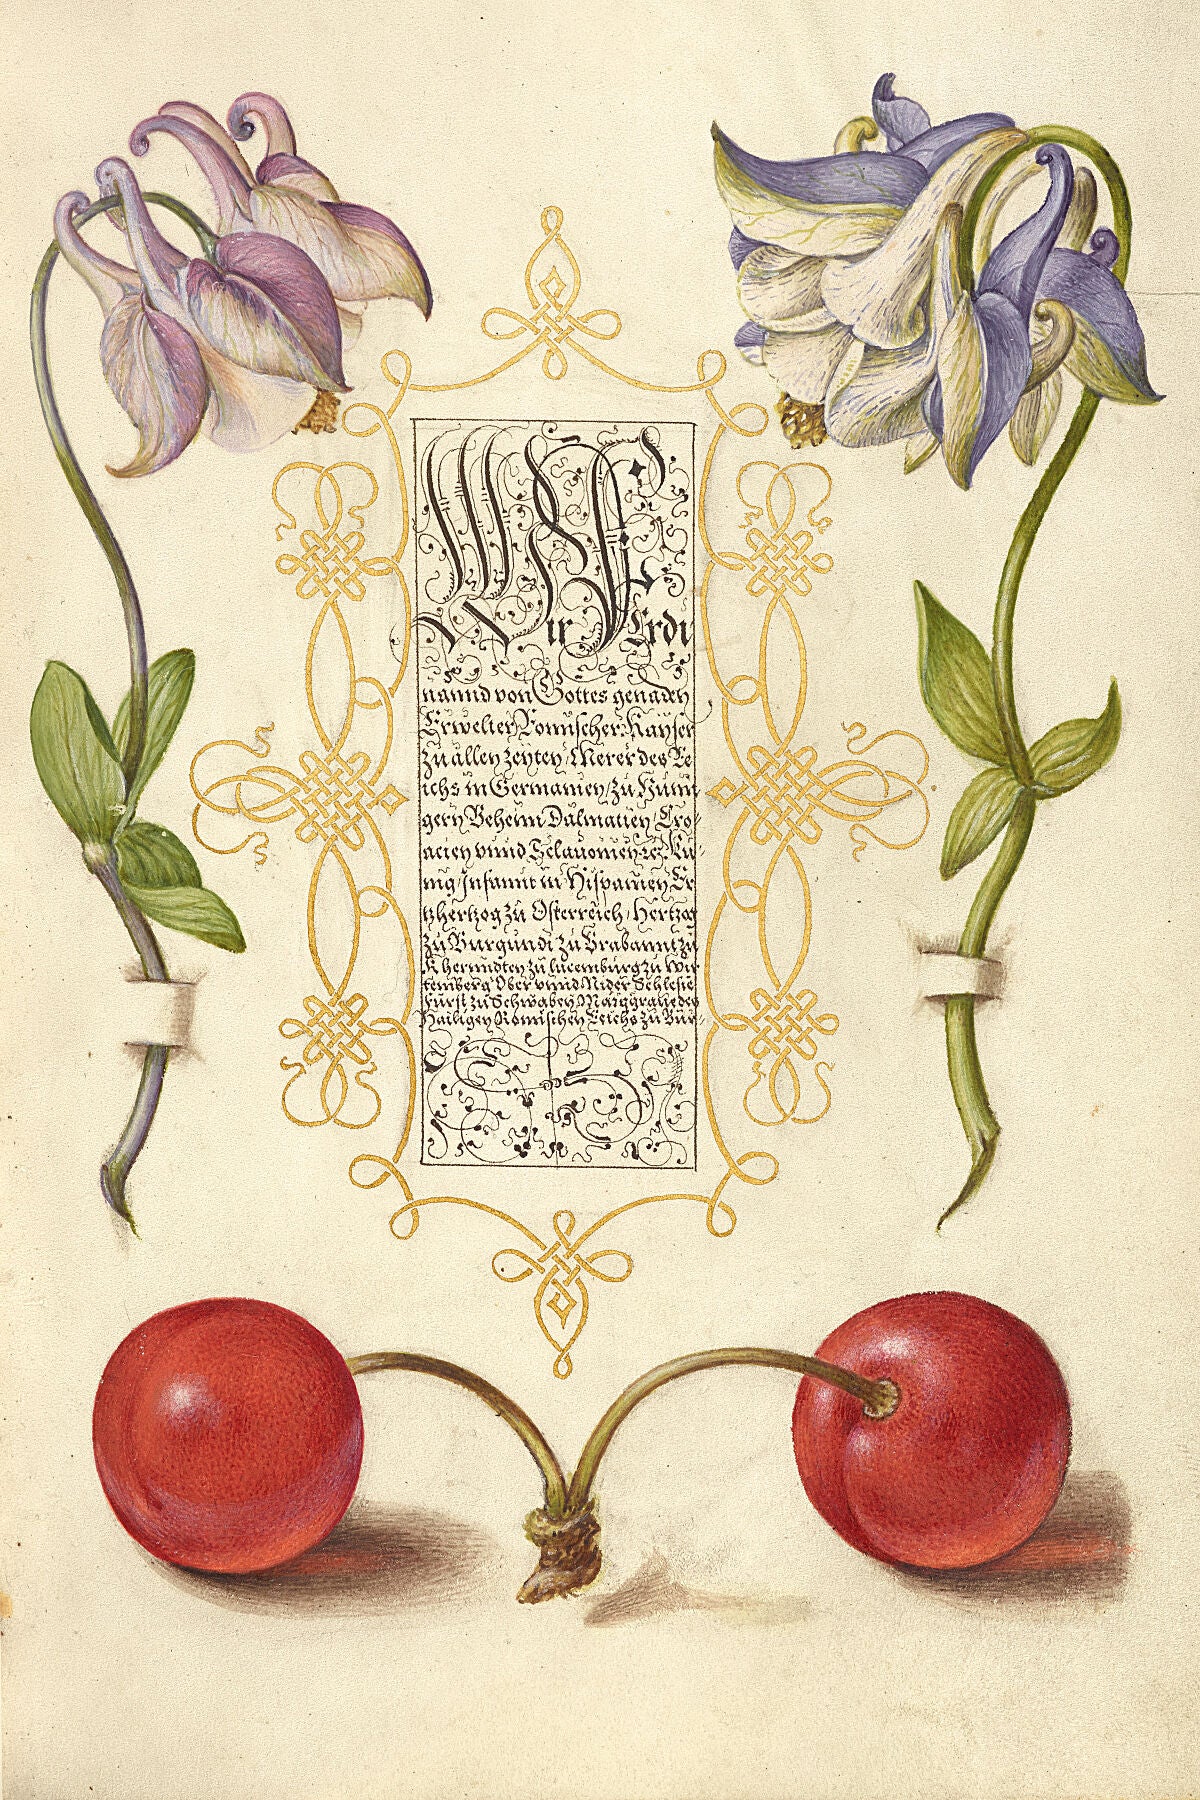 Wir Ferdi
nannd von Gottes genaden
Erwelter Romischer Kayser
zu allen zeyten Merer des Re
ichs in Germanien, zu Hunn
gern Beheim Dalmatien Cro-
acien vnnd Sclauonien ꝛc. Ku-
nig, Infannt in Hispanien Er
tzhertzog zu Osterreich, Hertzog
zu Burgundi zu Brabannt zu
Kherndten zu lucemburg zu Wir
temberg Ober vnnd Nider Schlesie
Fürst zu Schwaben Marggraue des
Hailigen Römischen Reichs zu Bur-